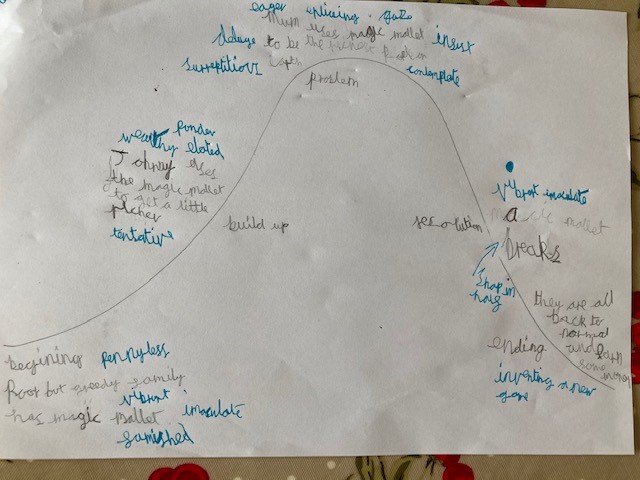 eager splicing gaze
Mum uses magic mallet insist
deluge to be the richest person in
surreptitious contemplate
problem
ponder
wealthy elated
Johnny uses
the magic mallet
to get a little
richer
tentative
build up
resolution
vibrant imaculate
magic mallet
breaks
they are all
back to
normal
and earn
some money
ending
inventing a new
game
begining pennyless
Poor but greedy family
vibrant imaculate
has magic mallet
famished